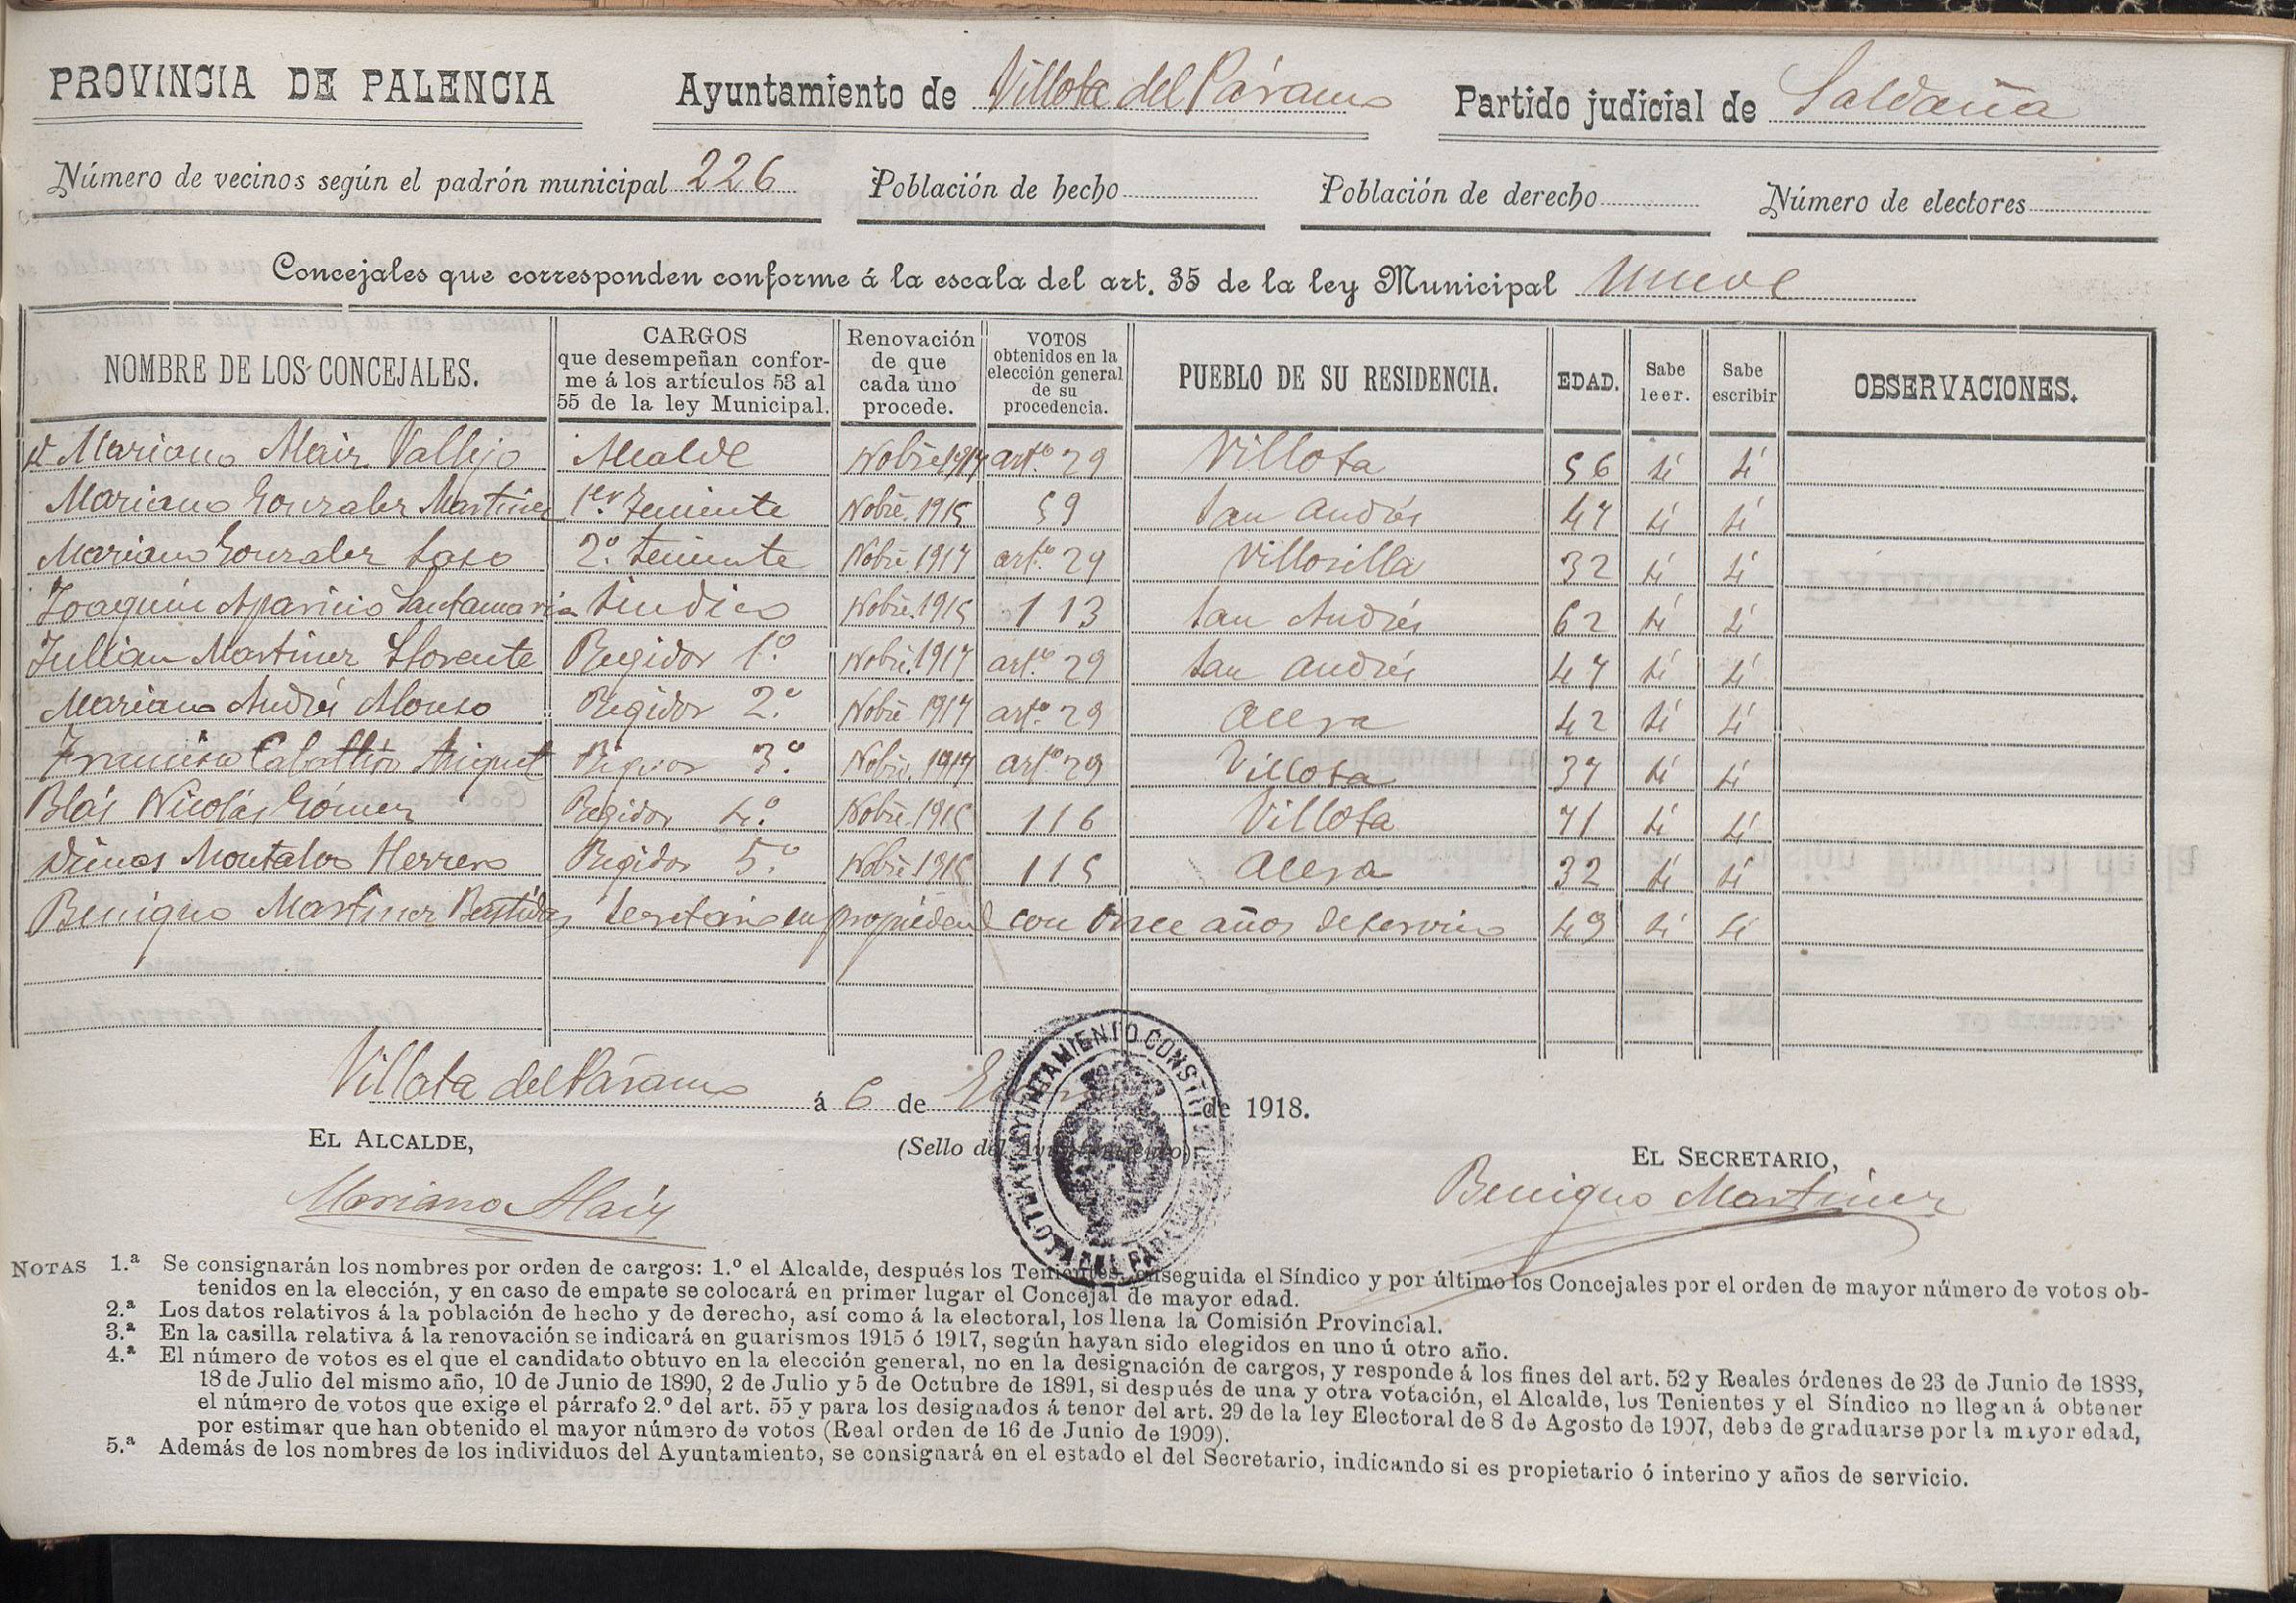 PROVINCIA DE PALENCIA Ayuntamiento de Villota del Páramo Partido judicial de Saldaña
Número de vecinos según el padrón municipal 226 Población de hecho Población de derecho Número de electores
Concejales que corresponden conforme á la escala del art. 35 de la ley Municipal nueve
NOMBRE DE LOS CONCEJALES. CARGOS que desempeñan conforme á los artículos 53 al 55 de la ley Municipal. Renovación de que cada uno procede. VOTOS obtenidos en la elección general de su procedencia. PUEBLO DE SU RESIDENCIA. EDAD. Sabe leer. Sabe escribir OBSERVACIONES.
Mariano Vallejo Alcalde Nobre 1917 arto. 29 Villota 56 sí sí
Mariano Gonzalez Martinez 1er Teniente Nobre. 1915 59 San Andrés 47 sí sí
Mariano Gonzalez 2.º Teniente Nobre 1917 arto. 29 Villosilla 32 sí sí
Joaquin Aparicio Santamaria Sindico Nobre. 1915 113 San Andrés 62 sí sí
Julian Martinez Llorente Regidor 1.º Nobre. 1917 arto. 29 San Andrés 47 sí sí
Mariano Andrés Alonso Regidor 2.º Nobre 1917 arto. 29 Acera 42 sí sí
Francisco 3.º Nobre. 1917 arto 29 Villota 37 sí sí
Blás Nicolás Gómez Regidor 4.º Nobre. 1915 116 Villota 71 sí sí
Dimas Montalvo Herrero Regidor 5.º Nobre. 1915 115 Acera 32 sí sí
Benigno Martinez Bastidas Secretario en propiedad con once años de servicio 49 sí sí
Villota del Páramo á 6 de de 1918.
EL ALCALDE, (Sello del Ayuntamiento) EL SECRETARIO,
Mariano Benigno Martinez
AYUNTAMIENTO CONSTITUCIONAL VILLOTA DEL PARAMO
NOTAS 1.ª Se consignarán los nombres por orden de cargos: 1.º el Alcalde, después los Tenientes, enseguida el Síndico y por último los Concejales por el orden de mayor número de votos ob-
tenidos en la elección, y en caso de empate se colocará en primer lugar el Concejal de mayor edad.
2.ª Los datos relativos á la población de hecho y de derecho, así como á la electoral, los llena la Comisión Provincial.
3.ª En la casilla relativa á la renovación se indicará en guarismos 1915 ó 1917, según hayan sido elegidos en uno ú otro año.
4.ª El número de votos es el que el candidato obtuvo en la elección general, no en la designación de cargos, y responde á los fines del art. 52 y Reales órdenes de 23 de Junio de 1888,
18 de Julio del mismo año, 10 de Junio de 1890, 2 de Julio y 5 de Octubre de 1891, si después de una y otra votación, el Alcalde, los Tenientes y el Síndico no llegan á obtener
el número de votos que exige el párrafo 2.º del art. 55 y para los designados á tenor del art. 29 de la ley Electoral de 8 de Agosto de 1907, debe de graduarse por la mayor edad,
por estimar que han obtenido el mayor número de votos (Real orden de 16 de Junio de 1909).
5.ª Además de los nombres de los individuos del Ayuntamiento, se consignará en el estado el del Secretario, indicando si es propietario ó interino y años de servicio.